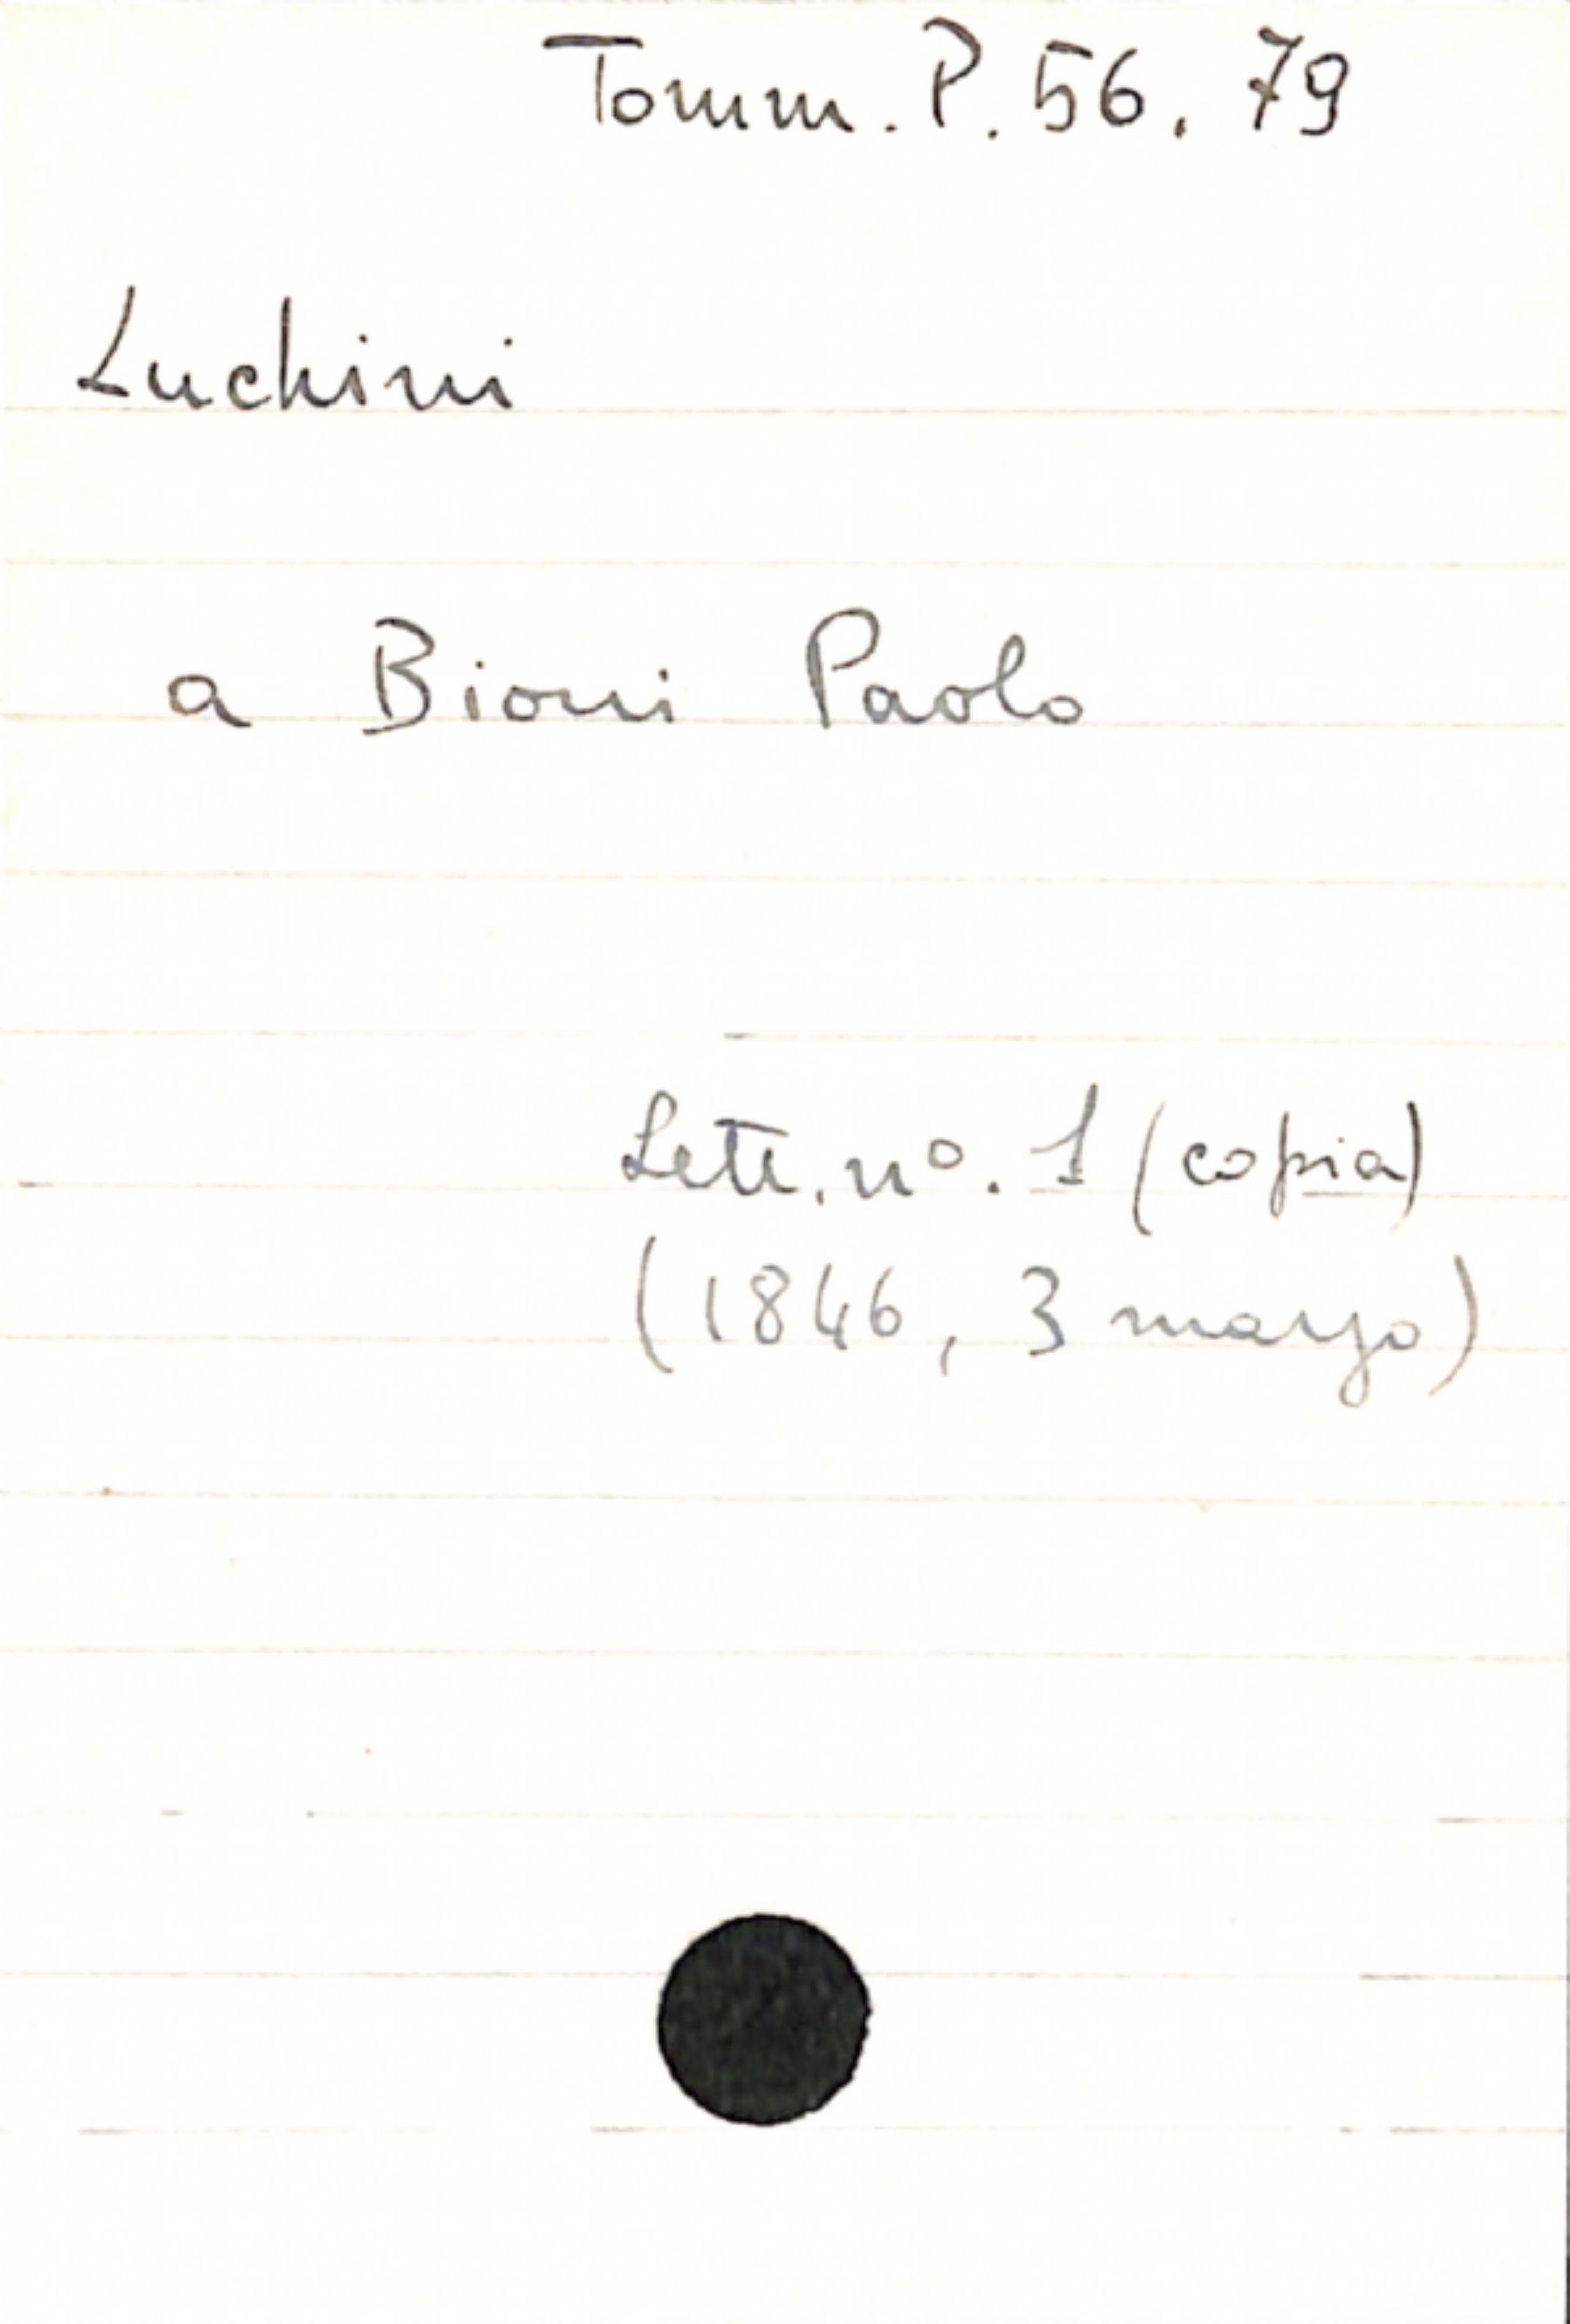 Tomm. P. 56. 79
Luchini
a Bioni Paolo
Lett. nº. 1 (copia)
(1846, 3 marzo)